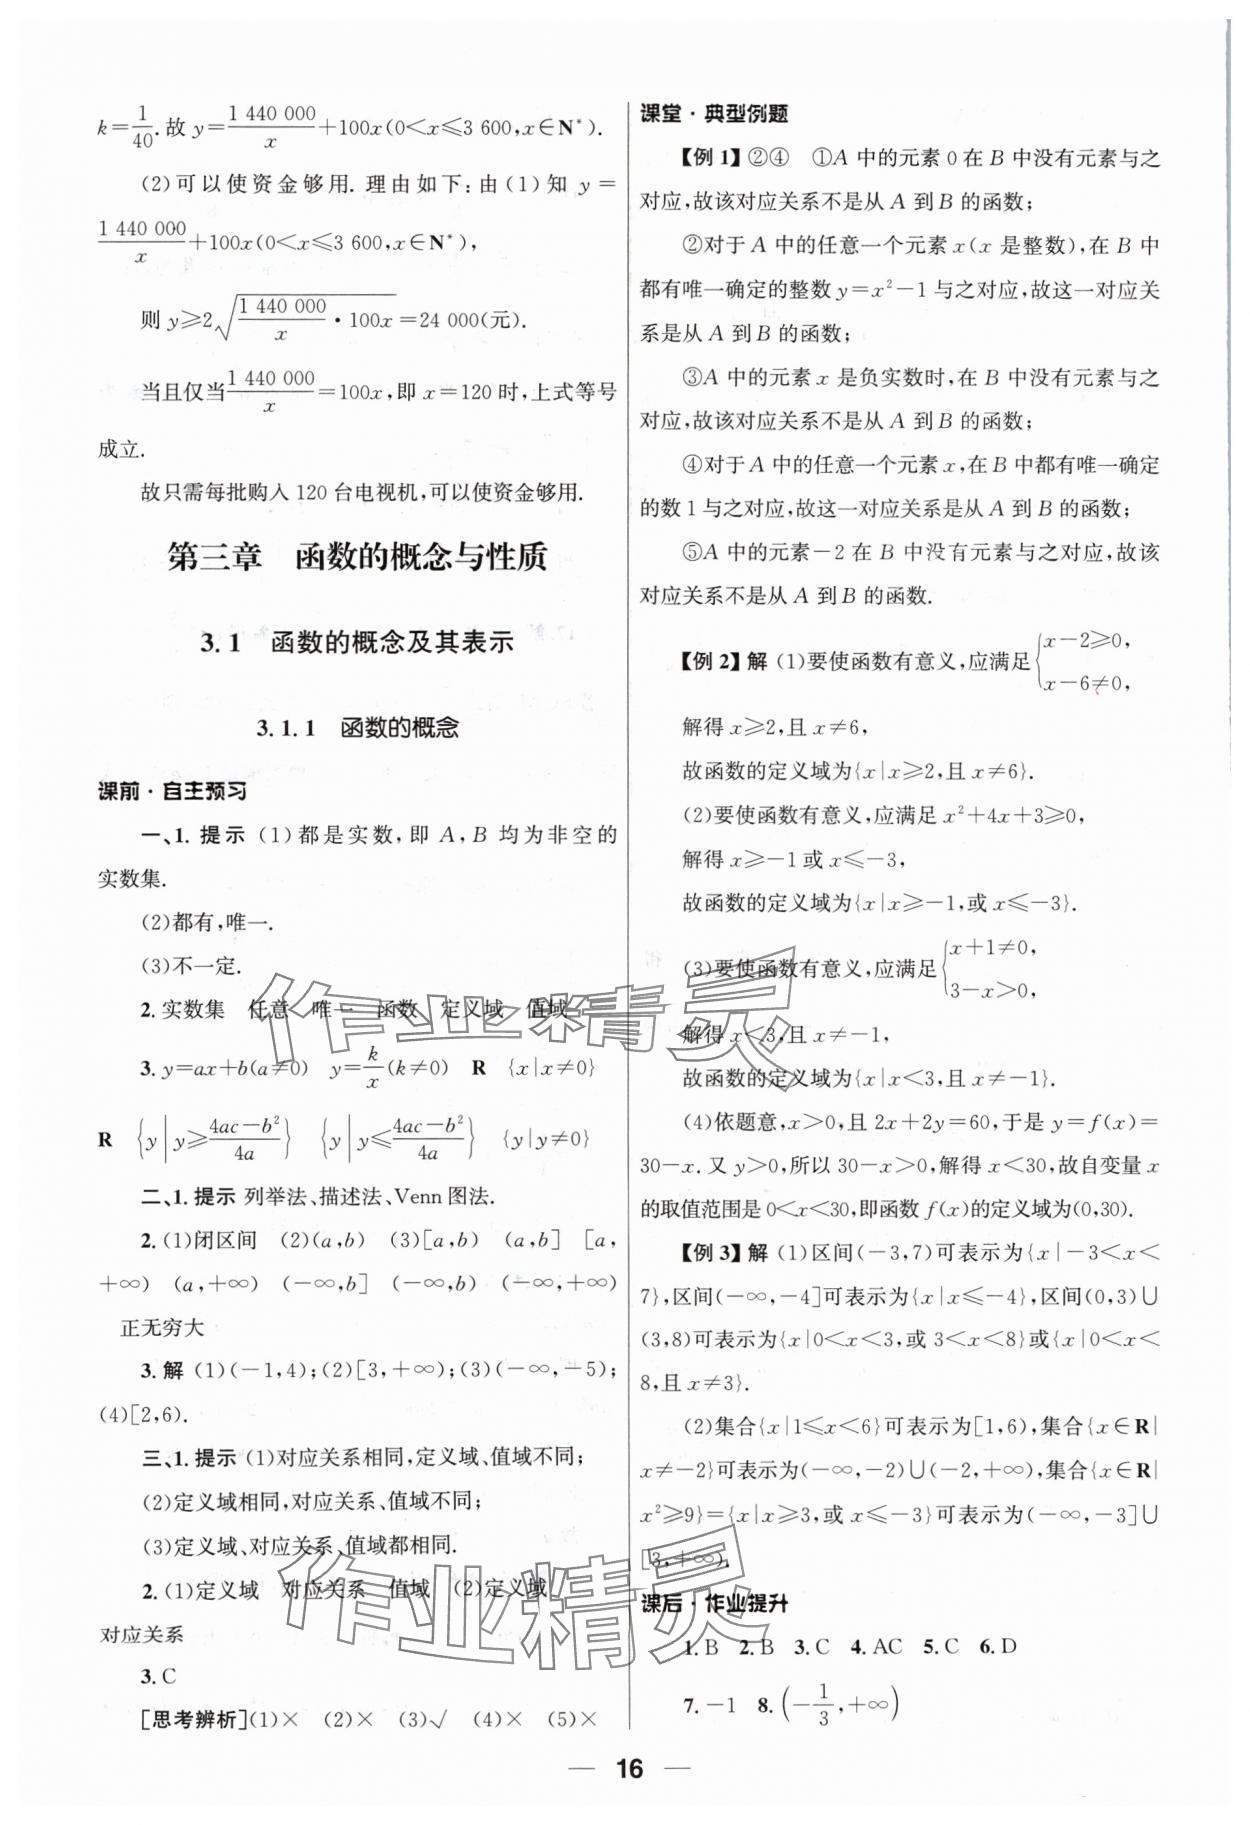 k=1/40.故 y=1 440 000/x+100x(0<x≤3 600,x∈N*).
(2)可以使资金够用. 理由如下:由(1)知 y=
1 440 000/x+100x(0<x≤3 600,x∈N*),
则 y≥2√(1 440 000/x·100x)=24 000(元).
当且仅当1 440 000/x=100x,即 x=120 时,上式等号
成立.
故只需每批购入 120 台电视机,可以使资金够用.
第三章 函数的概念与性质
3.1 函数的概念及其表示
3.1.1 函数的概念
课前·自主预习
一、1. 提示 (1)都是实数,即 A,B 均为非空的
实数集.
(2)都有,唯一.
(3)不一定.
2. 实数集 任意 唯一 函数 定义域 值域
3. y=ax+b(a≠0) y=k/x(k≠0) R {x|x≠0}
R {y|y≥(4ac-b²)/4a} {y|y≤(4ac-b²)/4a} {y|y≠0}
二、1. 提示 列举法、描述法、Venn 图法.
2. (1)闭区间 (2)(a,b) (3)[a,b) (a,b] [a,
+∞) (a,+∞) (-∞,b] (-∞,b) (-∞,+∞)
正无穷大
3. 解 (1)(-1,4);(2)[3,+∞);(3)(-∞,-5);
(4)[2,6).
三、1. 提示 (1)对应关系相同,定义域、值域不同;
(2)定义域相同,对应关系、值域不同;
(3)定义域、对应关系、值域都相同.
2. (1)定义域 对应关系 值域 (2)定义域
对应关系
3. C
[思考辨析](1)× (2)× (3)√ (4)× (5)×
课堂·典型例题
【例 1】②④ ①A 中的元素 0 在 B 中没有元素与之
对应,故该对应关系不是从 A 到 B 的函数;
②对于 A 中的任意一个元素 x(x 是整数),在 B 中
都有唯一确定的整数 y=x²-1 与之对应,故这一对应关
系是从 A 到 B 的函数;
③A 中的元素 x 是负实数时,在 B 中没有元素与之
对应,故该对应关系不是从 A 到 B 的函数;
④对于 A 中的任意一个元素 x,在 B 中都有唯一确定
的数 1 与之对应,故这一对应关系是从 A 到 B 的函数;
⑤A 中的元素-2 在 B 中没有元素与之对应,故该
对应关系不是从 A 到 B 的函数.
【例 2】解 (1)要使函数有意义,应满足{x-2≥0, x-6≠0,
解得 x≥2,且 x≠6,
故函数的定义域为{x|x≥2,且 x≠6}.
(2)要使函数有意义,应满足 x²+4x+3≥0,
解得 x≥-1 或 x≤-3,
故函数的定义域为{x|x≥-1,或 x≤-3}.
(3)要使函数有意义,应满足{x+1≠0, 3-x>0,
解得 x<3,且 x≠-1,
故函数的定义域为{x|x<3,且 x≠-1}.
(4)依题意,x>0,且 2x+2y=60,于是 y=f(x)=
30-x. 又 y>0,所以 30-x>0,解得 x<30,故自变量 x
的取值范围是 0<x<30,即函数 f(x)的定义域为(0,30).
【例 3】解 (1)区间(-3,7)可表示为{x|-3<x<
7},区间(-∞,-4]可表示为{x|x≤-4},区间(0,3)∪
(3,8)可表示为{x|0<x<3,或 3<x<8}或{x|0<x<
8,且 x≠3}.
(2)集合{x|1≤x<6}可表示为[1,6),集合{x∈R|
x≠-2}可表示为(-∞,-2)∪(-2,+∞),集合{x∈R|
x²≥9}={x|x≥3,或 x≤-3}可表示为(-∞,-3]∪
[3,+∞).
课后·作业提升
1. B 2. B 3. C 4. AC 5. C 6. D
7. -1 8. (-1/3,+∞)
— 16 —
作业精灵
作业精灵